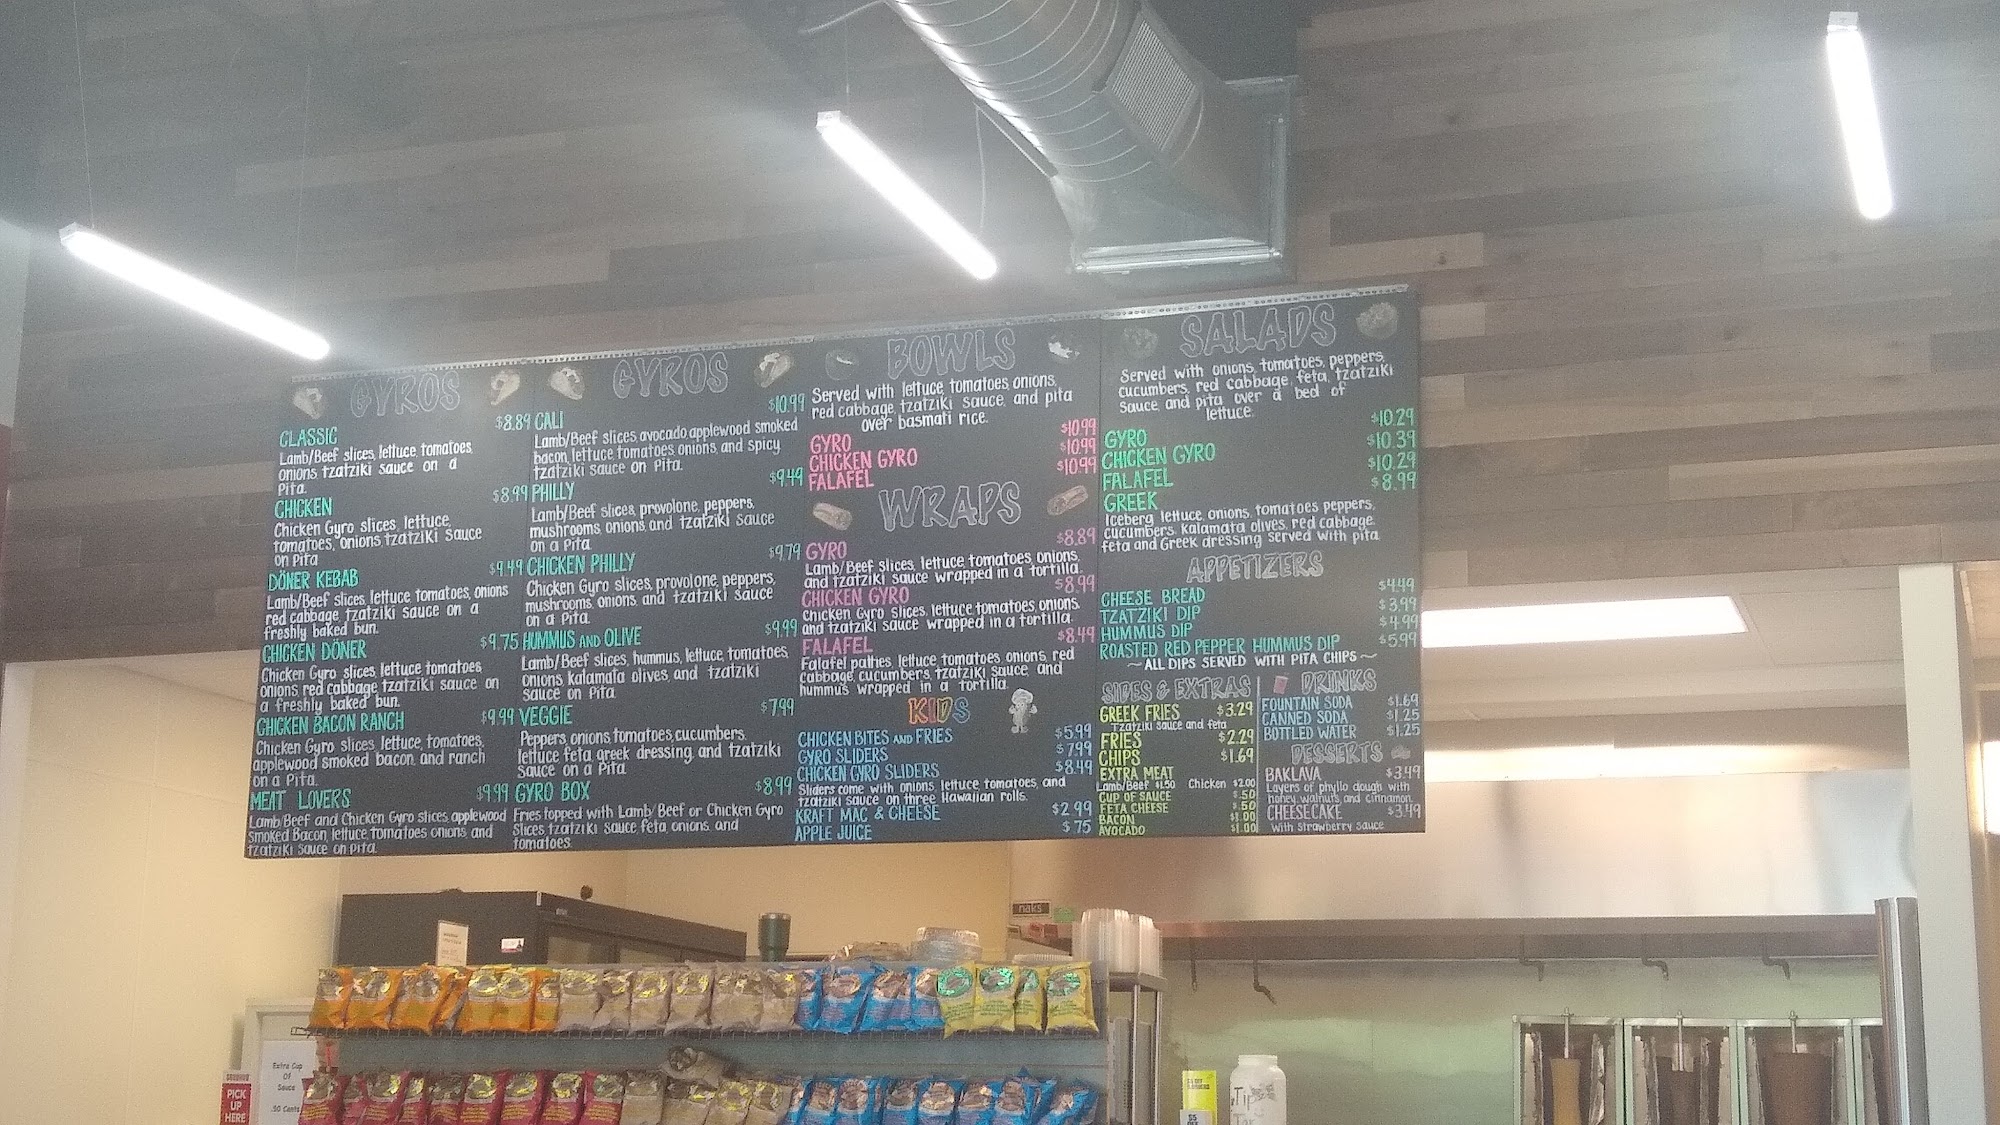 GYROS
CLASSIC $8.89
Lamb/Beef slices, lettuce, tomatoes,
onions, tzatziki sauce on a
Pita.
CHICKEN $8.99
Chicken Gyro slices, lettuce,
tomatoes, onions, tzatziki sauce
on Pita
DÖNER KEBAB $9.49
Lamb/Beef slices, lettuce, tomatoes, onions
red cabbage, tzatziki sauce on a
freshly baked bun.
CHICKEN DÖNER $9.75
Chicken Gyro slices, lettuce tomatoes
onions, red cabbage, tzatziki sauce on
a freshly baked bun.
CHICKEN BACON RANCH $9.99
Chicken Gyro slices, lettuce, tomatoes,
applewood smoked bacon, and ranch
on a Pita.
MEAT LOVERS $9.99
Lamb/Beef and Chicken Gyro slices, applewood
Smoked Bacon, lettuce, tomatoes, onions, and
tzatziki Sauce on Pita.
GYROS
CALI $10.99
Lamb/Beef slices, avocado, applewood smoked
bacon, lettuce, tomatoes, onions, and spicy
tzatziki sauce on Pita.
PHILLY $9.49
Lamb/Beef slices, provolone, peppers,
mushrooms, onions, and tzatziki sauce
on a Pita.
CHICKEN PHILLY $9.79
Chicken Gyro slices, provolone, peppers,
mushrooms, onions, and tzatziki sauce
on a Pita.
HUMMUS AND OLIVE $9.99
Lamb/Beef slices, hummus, lettuce, tomatoes,
onions, kalamata olives, and tzatziki
sauce on Pita.
VEGGIE $7.99
Peppers, onions, tomatoes, cucumbers,
lettuce, feta, greek dressing, and tzatziki
sauce on a Pita
GYRO BOX $8.99
Fries topped with Lamb/Beef or Chicken Gyro
Slices, tzatziki sauce, feta, onions, and
tomatoes.
BOWLS
Served with lettuce, tomatoes, onions,
red cabbage, tzatziki sauce, and pita
over basmati rice.
GYRO $10.99
CHICKEN GYRO $10.99
FALAFEL $10.99
WRAPS
GYRO $8.89
Lamb/Beef slices, lettuce, tomatoes, onions,
and tzatziki sauce wrapped in a tortilla.
CHICKEN GYRO $8.99
Chicken Gyro slices, lettuce, tomatoes, onions,
and tzatziki sauce wrapped in a tortilla.
FALAFEL $8.49
Falafel pathes, lettuce, tomatoes, onions, red
cabbage, cucumbers, tzatziki sauce, and
hummus wrapped in a tortilla.
KIDS
CHICKEN BITES AND FRIES $5.99
GYRO SLIDERS $7.99
CHICKEN GYRO SLIDERS $8.49
Sliders come with onions, lettuce, tomatoes, and
tzatziki sauce on three Hawaiian rolls.
KRAFT MAC & CHEESE $2.99
APPLE JUICE $.75
SALADS
Served with onions, tomatoes, peppers,
cucumbers, red cabbage, feta, tzatziki
Sauce, and pita over a bed of
lettuce.
GYRO $10.29
CHICKEN GYRO $10.39
FALAFEL $10.29
GREEK $8.99
Iceberg lettuce, onions, tomatoes, peppers,
cucumbers, kalamata olives, red cabbage,
feta and Greek dressing. Served with pita
APPETIZERS
CHEESE BREAD $4.49
TZATZIKI DIP $3.99
HUMMUS DIP $4.99
ROASTED RED PEPPER HUMMUS DIP $5.99
~ALL DIPS SERVED WITH PITA CHIPS~
SIDES & EXTRAS
GREEK FRIES $3.29
Tzatziki sauce and feta
FRIES $2.29
CHIPS $1.69
EXTRA MEAT
Lamb/Beef $1.50 Chicken $2.00
CUP OF SAUCE $.50
FETA CHEESE $.50
BACON $1.00
AVOCADO $1.00
DRINKS
FOUNTAIN SODA $1.69
CANNED SODA $1.25
BOTTLED WATER $1.25
DESSERTS
BAKLAVA $3.49
Layers of phyllo dough with
honey, walnuts, and cinnamon
CHEESECAKE $3.49
With Strawberry Sauce
naks
Extra Cup
Of
Sauce
.50 Cents
PICK
UP
HERE
Tip
Jar
$5